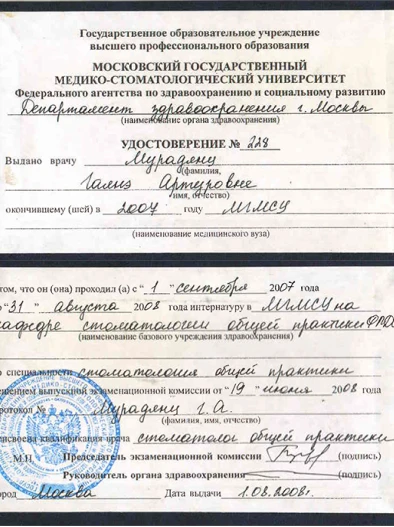 Государственное образовательное учреждение
высшего профессионального образования
МОСКОВСКИЙ ГОСУДАРСТВЕННЫЙ
МЕДИКО-СТОМАТОЛОГИЧЕСКИЙ УНИВЕРСИТЕТ
Федерального агентства по здравоохранению и социальному развитию
Департамент здравоохранения г. Москвы
(наименование органа здравоохранения)
УДОСТОВЕРЕНИЕ № 228
Выдано врачу Мурадянц
(фамилия,
Галинэ Артуровне
имя, отчество)
окончившему (шей) в 2007 году МГМСУ
(наименование медицинского вуза)
том, что он (она) проходил (а) с “ 1 ” сентября 2007 года
“31” августа 2008 года интернатуру в МГМСУ на
кафедре стоматологии общей практики ФПДО
(наименование базового учреждения здравоохранения)
специальности стоматология общей практики
решением выпускной экзаменационной комиссии от “19” июня 2008 года
протокол № Мурадянц Г.А.
(фамилия, имя, отчество)
присвоена квалификация врача стоматолог общей практики
М.П. Председатель экзаменационной комиссии (подпись)
Руководитель органа здравоохранения (подпись)
город Москва Дата выдачи 1.08.2008г.